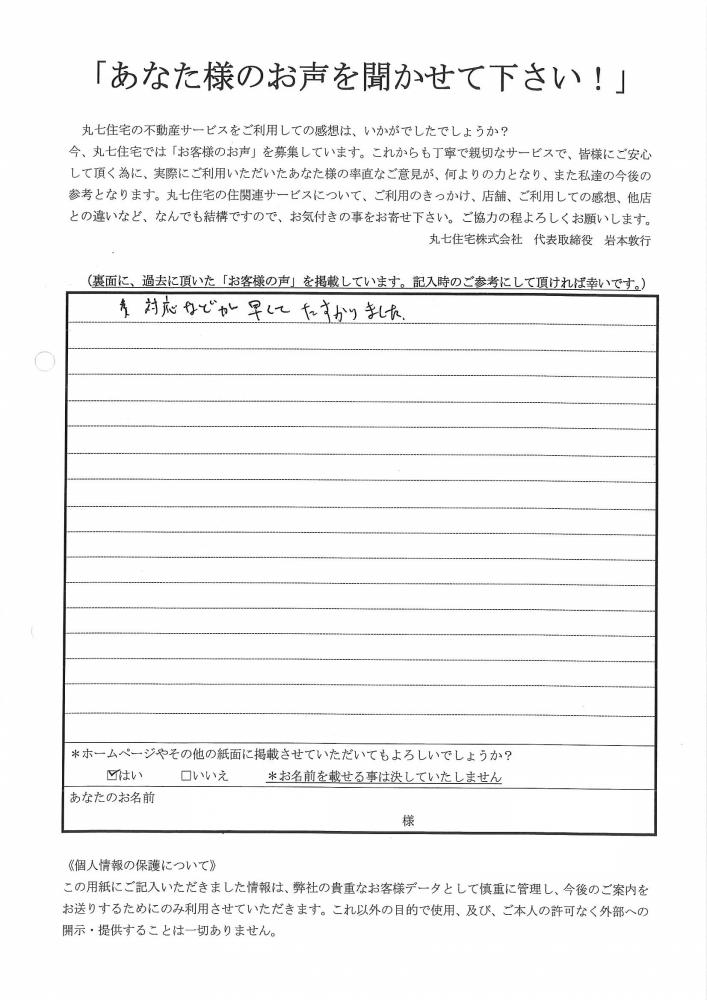 「あなた様のお声を聞かせて下さい！」
丸七住宅の不動産サービスをご利用しての感想は、いかがでしたでしょうか？
今、丸七住宅では「お客様のお声」を募集しています。これからも丁寧で親切なサービスで、皆様にご安心
して頂く為に、実際にご利用いただいたあなた様の率直なご意見が、何よりの力となり、また私達の今後の
参考となります。丸七住宅の住関連サービスについて、ご利用のきっかけ、店舗、ご利用しての感想、他店
との違いなど、なんでも結構ですので、お気付きの事をお寄せ下さい。ご協力の程よろしくお願いします。
丸七住宅株式会社　代表取締役　岩本敦行
（裏面に、過去に頂いた「お客様の声」を掲載しています。記入時のご参考にして頂ければ幸いです。）
対応などが 早くて たすかりました.
＊ホームページやその他の紙面に掲載させていただいてもよろしいでしょうか？
☑はい　□いいえ　＊お名前を載せる事は決していたしません
あなたのお名前
様
《個人情報の保護について》
この用紙にご記入いただきました情報は、弊社の貴重なお客様データとして慎重に管理し、今後のご案内を
お送りするためにのみ利用させていただきます。これ以外の目的で使用、及び、ご本人の許可なく外部への
開示・提供することは一切ありません。